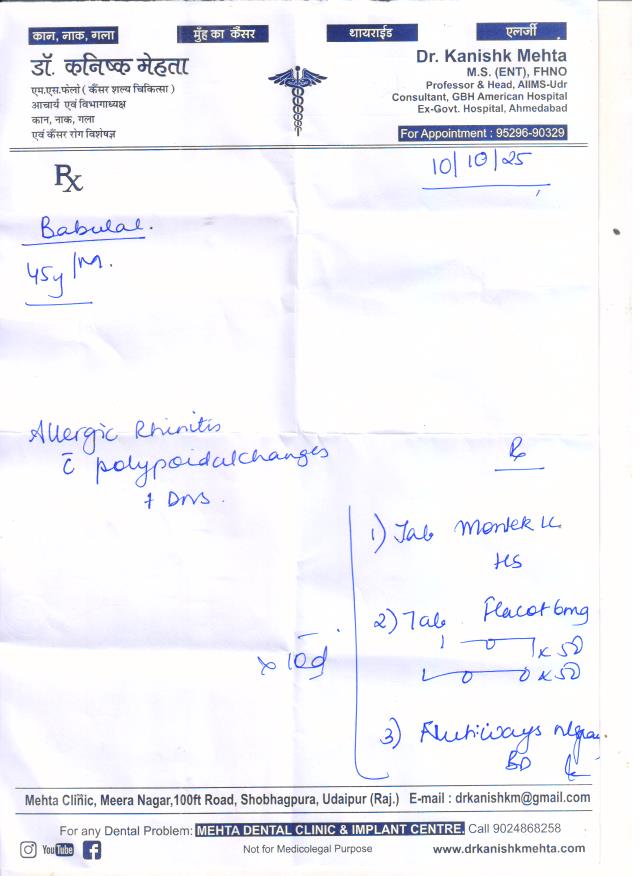 कान, नाक, गला
मुँह का कैंसर
थायराईड
एलर्जी
डॉ. कनिष्क मेहता
एम.एस.फेलो ( कैंसर शल्य चिकित्सा )
आचार्य एवं विभागाध्यक्ष
कान, नाक, गला
एवं कैंसर रोग विशेषज्ञ
Dr. Kanishk Mehta
M.S. (ENT), FHNO
Professor & Head, AIIMS-Udr
Consultant, GBH American Hospital
Ex-Govt. Hospital, Ahmedabad
For Appointment : 95296-90329
Rx
10/10/25
Babulal.
45y/M.
Allergic Rhinitis
c̄ polypoidal changes
+ DNS.
Rx
1) Tab Montek LC
HS
2) Tab. Flacot 6mg
1 0 1 x 5D
1 0 0 x 5D
x 10d
3) Flutiways
BD
Mehta Clinic, Meera Nagar,100ft Road, Shobhagpura, Udaipur (Raj.) E-mail : drkanishkm@gmail.com
For any Dental Problem: MEHTA DENTAL CLINIC & IMPLANT CENTRE, Call 9024868258
YouTube
Not for Medicolegal Purpose
www.drkanishkmehta.com